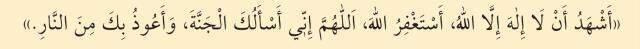 «أَشْهَدُ أَنْ لَا إِلٰهَ إِلَّا اللهُ، أَسْتَغْفِرُ اللهَ، اَللّٰهُمَّ إِنِّي أَسْأَلُكَ الْجَنَّةَ، وَأَعُوذُ بِكَ مِنَ النَّارِ.»